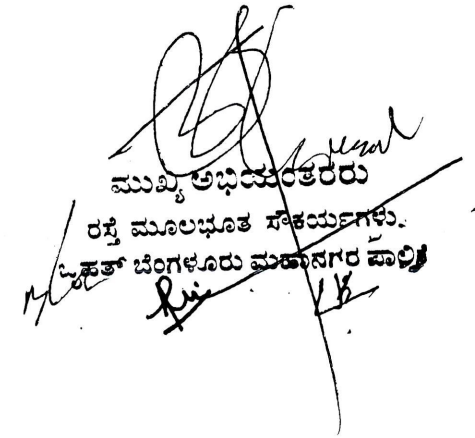 ಮುಖ್ಯ ಅಭಿಯಂತರರು
ರಸ್ತೆ ಮೂಲಭೂತ ಸೌಕರ್ಯಗಳು.
ಬೃಹತ್ ಬೆಂಗಳೂರು ಮಹಾನಗರ ಪಾಲಿಕೆ